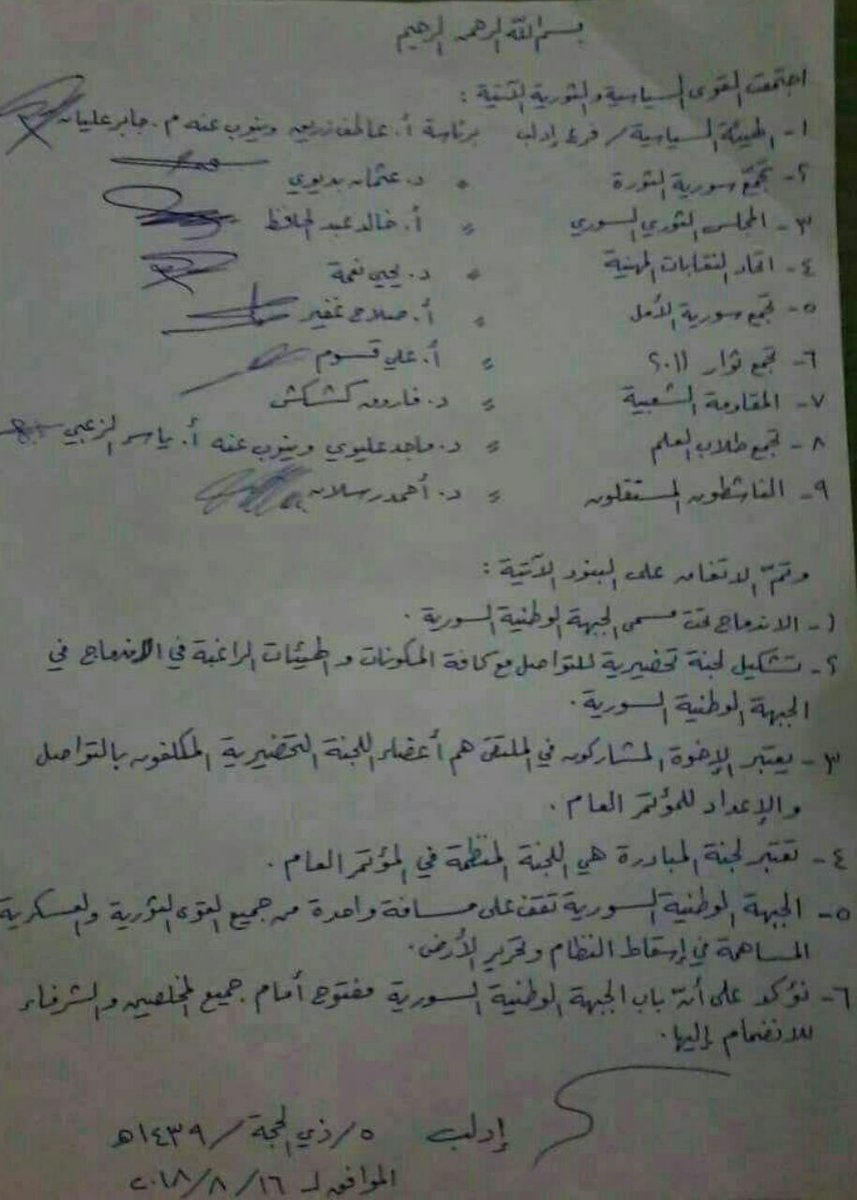 بسم الله الرحمن الرحيم
اجتمعت القوى السياسية والثورية الآتية :
١- الهيئة السياسية / فرع إدلب برئاسة أ. عاطف زريق وينوب عنه م. جابر عليان
٢- تجمّع سورية الثورة " د. عثمان بديوي
٣- المجلس الثوري السوري " أ. خالد عبد الحافظ
٤- اتحاد النقابات المهنية " د. يحيى نعمة
٥- تجمع سورية الأمل " أ. صلاح غفير
٦- تجمع ثوار ٢٠١١ " أ. علي قسوم
٧- المقاومة الشعبية " د. فاروق كشكش
٨- تجمع طلاب العلم " د. ماجد عليوي وينوب عنه أ. ياسر الزعبي
٩- الناشطون المستقلون " د. أحمد رسلان
وتمّ الاتفاق على البنود الآتية :
١- الاندماج تحت مسمى الجبهة الوطنية السورية .
٢- تشكيل لجنة تحضيرية للتواصل مع كافة المكونات والهيئات الراغبة في الاندماج في
الجبهة الوطنية السورية .
٣- يعتبر الإخوة المشاركون في الملتقى هم أعضاء اللجنة التحضيرية المكلفون بالتواصل
والإعداد للمؤتمر العام .
٤- تعتبر لجنة المبادرة هي اللجنة المنظمة في المؤتمر العام .
٥- الجبهة الوطنية السورية تقف على مسافة واحدة من جميع القوى الثورية والعسكرية
المساهمة في إسقاط النظام وتحرير الأرض .
٦- نؤكد على أنّ باب الجبهة الوطنية السورية مفتوح أمام جميع المخلصين والشرفاء
للانضمام إليها .
إدلب ٥/ذي الحجة/١٤٣٩هـ
الموافق لـ ١٦/٨/٢٠١٨